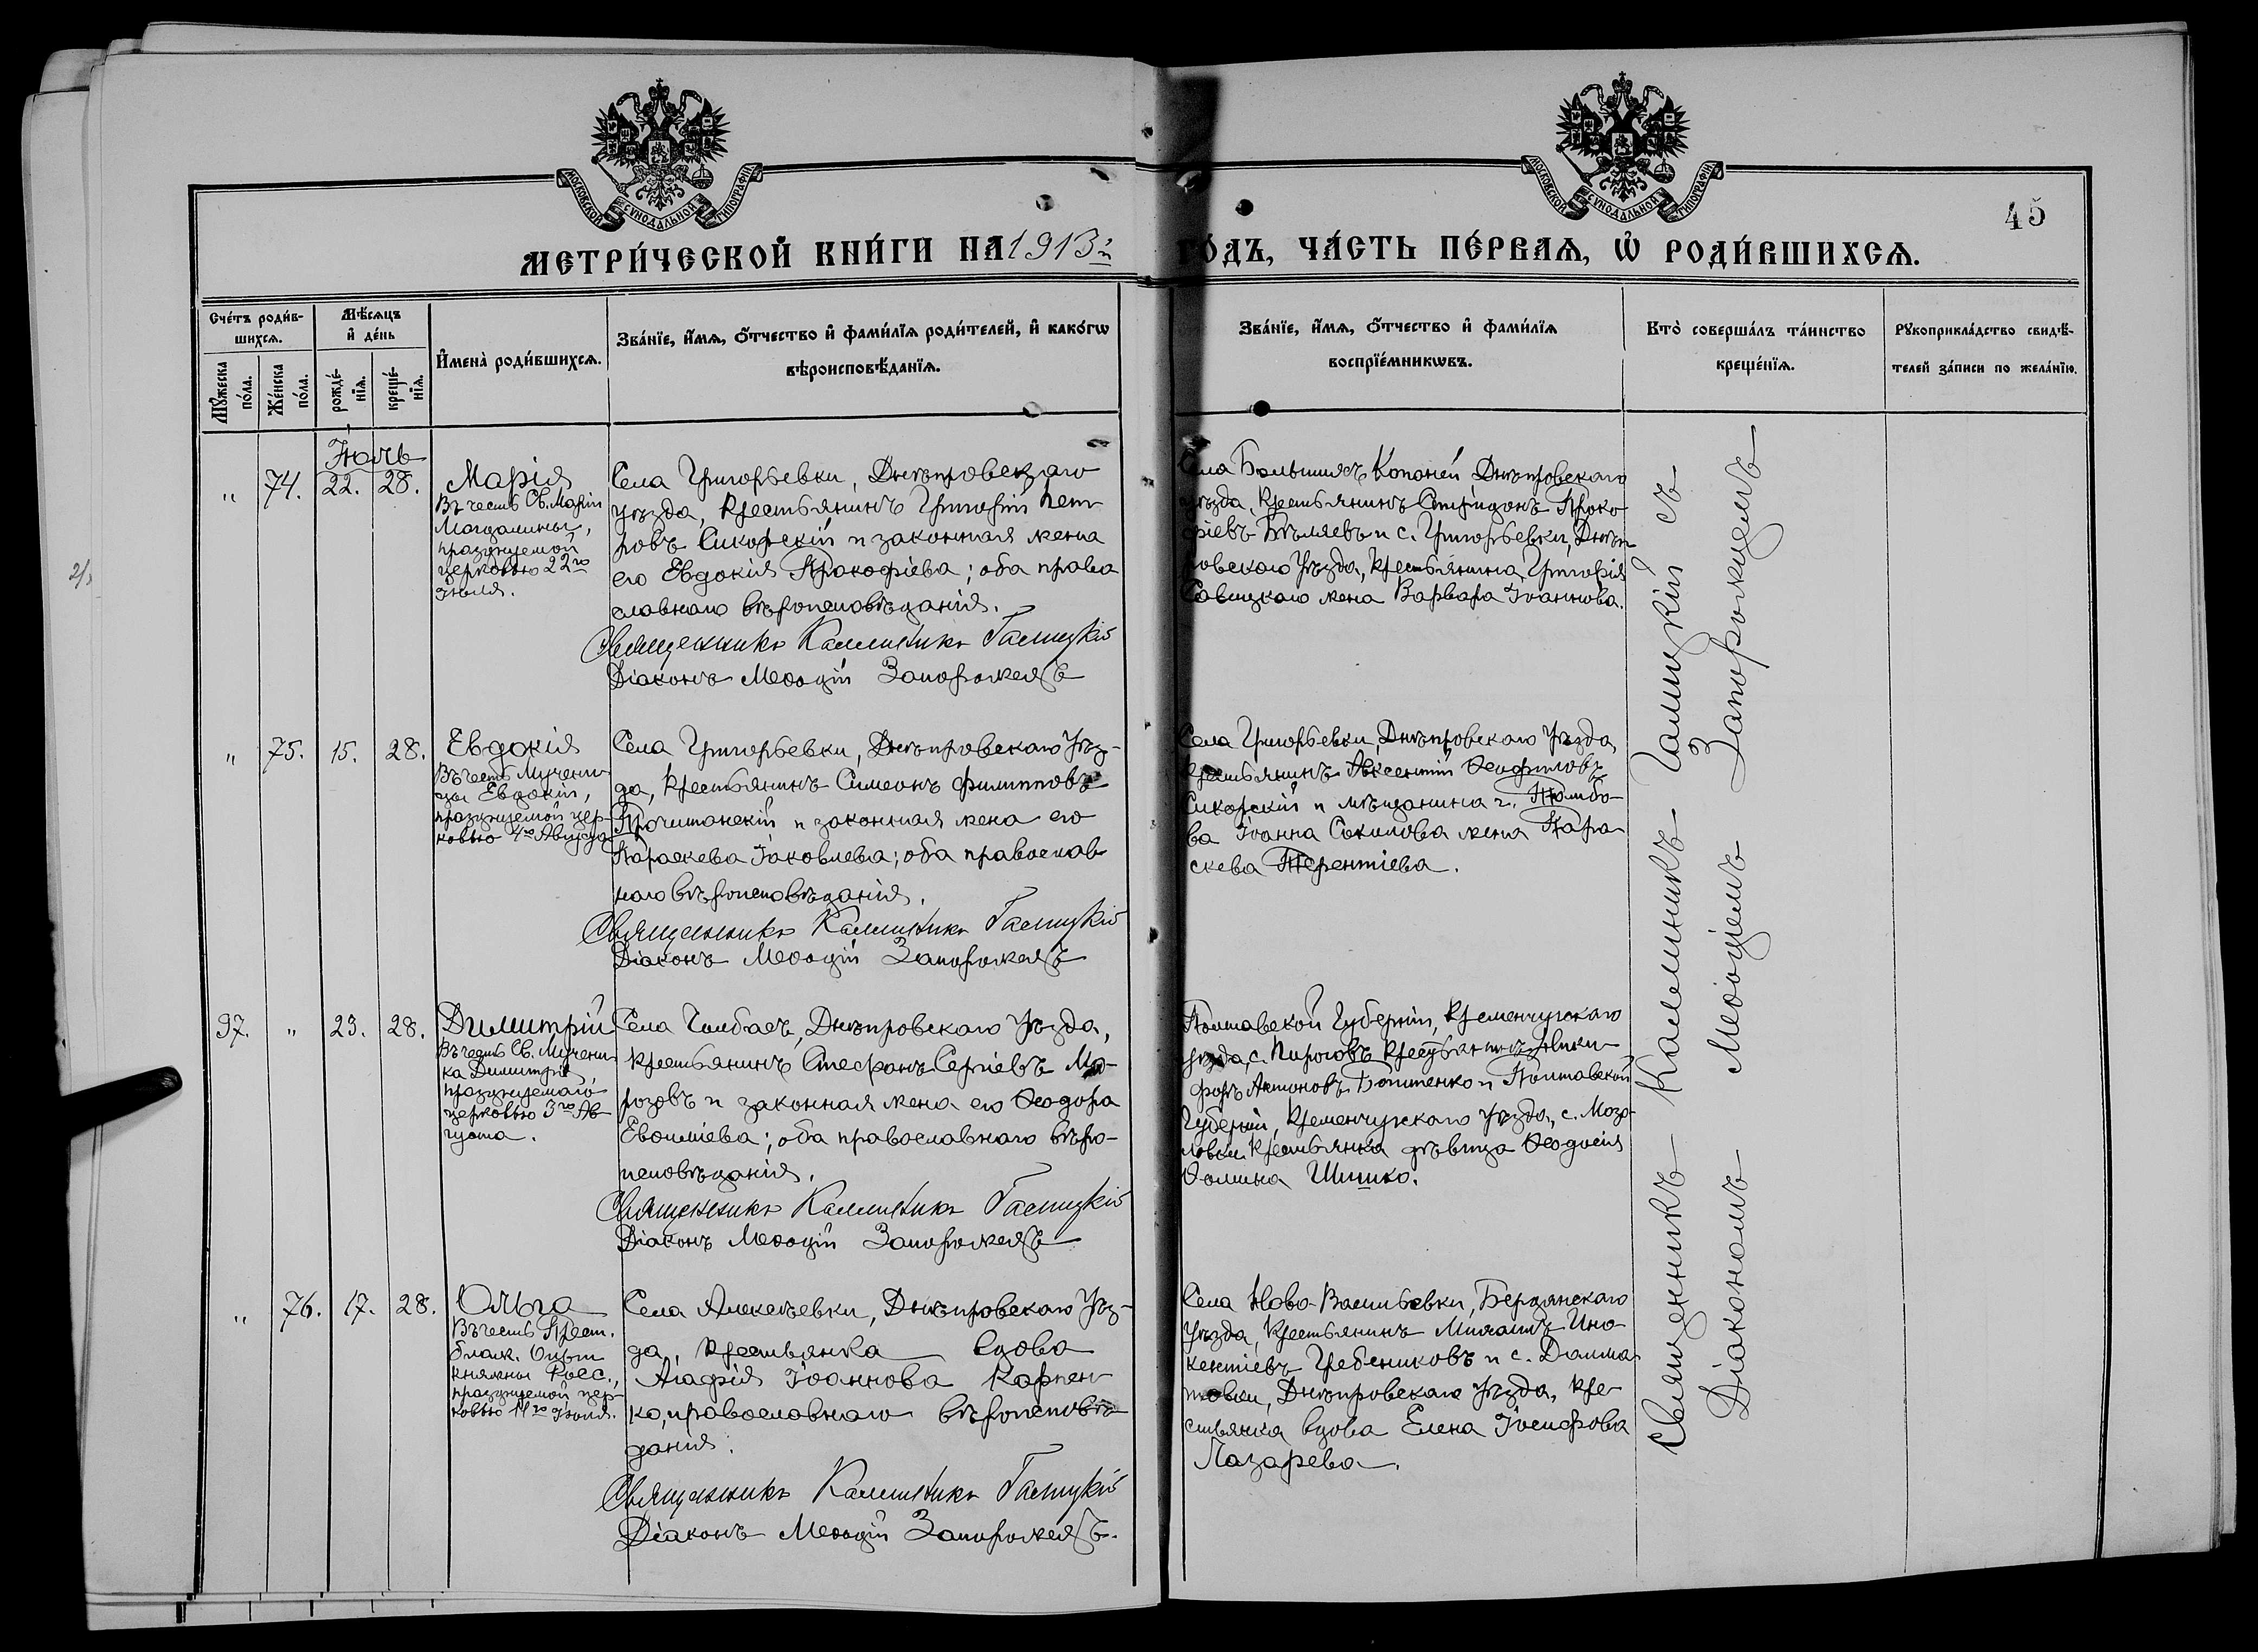 МОСКОВСКОЙ СѴНОДАЛЬНОЙ ТИПОГРАФІИ
МОСКОВСКОЙ СѴНОДАЛЬНОЙ ТИПОГРАФІИ
45
МЕТРИ́ЧЕСКОЙ КНИ́ГИ НА 1913 г. ГО́ДЪ, ЧА́СТЬ ПЕ́РВАѦ, Ѡ҆ РОДИ́ВШИХСѦ.
Сче́тъ роди́в-
шихсѧ.
Мꙋ́жеска по́ла.
Же́нска по́ла.
Мѣ́сѧцъ
и҆ де́нь
рожде́-
нїѧ.
креще́-
нїѧ.
И҆мена̀ роди́вшихсѧ.
Зва́нїе, и҆́мѧ, ѻ҆́тчество и҆ фами́лїѧ роди́телей, и҆ како́гѡ
вѣроисповѣ́данїѧ.
Зва́нїе, и҆́мѧ, ѻ҆́тчество и҆ фами́лїѧ
воспрїе́мникѡвъ.
Кто̀ соверша́лъ та́инство
креще́нїѧ.
Рꙋкоприкла́дство свидѣ́-
телей за́писи по жела́нїю.
Іюль
„ 74. 22. 28.
Марія
Въ честь Св. Маріи
Магдалины,
празднуемой
церковью 22го
Іюля.
Села Григорьевки, Днѣпровскаго
уѣзда, крестьянинъ Григорій Пет-
ровъ Сикорскій и законная жена
его Евдокія Прокофіева; оба право
славнаго вѣроисповѣданія.
Священникъ Каллиникъ Галицкій
Діаконъ Меѳодій Запорожецъ
Села Большихъ Копаней, Днѣпровскаго
уѣзда, крестьянинъ Спиридонъ Проко
фіевъ Бѣляевъ и с. Григорьевки, Днѣп
ровскаго уѣзда, крестьянина Григорія
Савицкаго жена Варвара Іоаннова.
„ 75. 15. 28.
Евдокія
Въ честь Мучени-
цы Евдокіи,
празднуемой цер-
ковью 4го Августа
Села Григорьевки, Днѣпровскаго уѣз-
да, крестьянинъ Симеонъ Филипповъ
законная жена его
Параскева Іаковлева; оба православ
наго вѣроисповѣданія.
Священникъ Каллиникъ Галицкій
Діаконъ Меѳодій Запорожецъ
Села Григорьевки, Днѣпровскаго уѣзда,
крестьянинъ Авксентій Ѳеофиловъ
Сикорскій и мѣщанина г. Тамбо-
ва Іоанна Соколова жена Пара-
скева Терентіева.
97. „ 23. 28.
Димитрій
Въ честь Св. Мучени-
ка Димитрія
празднуемаго
церковью 3го Ав-
густа.
Села Чалбасъ, Днѣпровскаго уѣзда,
крестьянинъ Стефанъ Сергіевъ Мо-
розовъ и законная жена его Ѳеодора
Евѳиміева; оба православнаго вѣро-
исповѣданія.
Священникъ Каллиникъ Галицкій
Діаконъ Меѳодій Запорожецъ
Полтавской Губерніи, Кременчугскаго
уѣзда, с. Пироговъ крестьянинъ Ники-
форъ Антоновъ и Полтавской
Губерніи, Кременчугскаго уѣзда, с. Мозо-
лѣвки крестьянка дѣвица Ѳеодосія
Ѳомина Шишко.
„ 76. 17. 28.
Ольга
Въ честь
блаж. Ольги
княжны Росс.,
празднуемой цер-
ковью 11го Іюля.
Села Алексѣевки, Днѣпровскаго уѣз-
да, крестьянка вдова
Агафія Іоаннова Карпен-
ко, православнаго вѣроисповѣ-
данія.
Священникъ Каллиникъ Галицкій
Діаконъ Меѳодій Запорожецъ.
Села Ново-Васильевки, Бердянскаго
уѣзда, крестьянинъ Михаилъ Ино-
кентіевъ Гребенниковъ и с. Далма-
товки, Днѣпровскаго уѣзда, кре-
стьянка вдова Елена Іосифова
Лазарева.
Священникъ Каллиникъ Галицкій съ
Діакономъ Меѳодіемъ Запорожцемъ